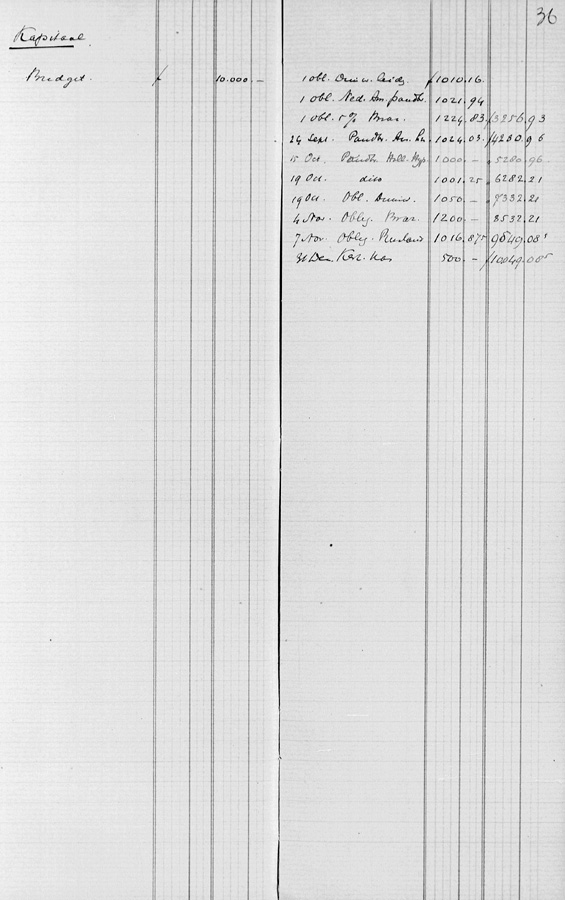 36
Kapitaal
Budget. f 10.000.—
1 obl. Duinw. leidg. f 1010.16.
1 obl. Ned. Am. pandbr. 1021.94
1 obl. 5% Braz. 1224.83 f 3256.93
24 Sept. Pandbr. Am. 1024.03 f 4280.96
15 Oct. Pandbr. Holl. Hyp. 1000.— 5280.96
19 Oct. dito 1001.25 6282.21
19 Oct. Obl. Duinw. 1050.— 7332.21
4 Nov. Oblig. Braz. 1200.— 8532.21
7 Nov. Oblig. Rusland 1016.875 9549.085
31 Dec. Kas 500.— f 10049.085